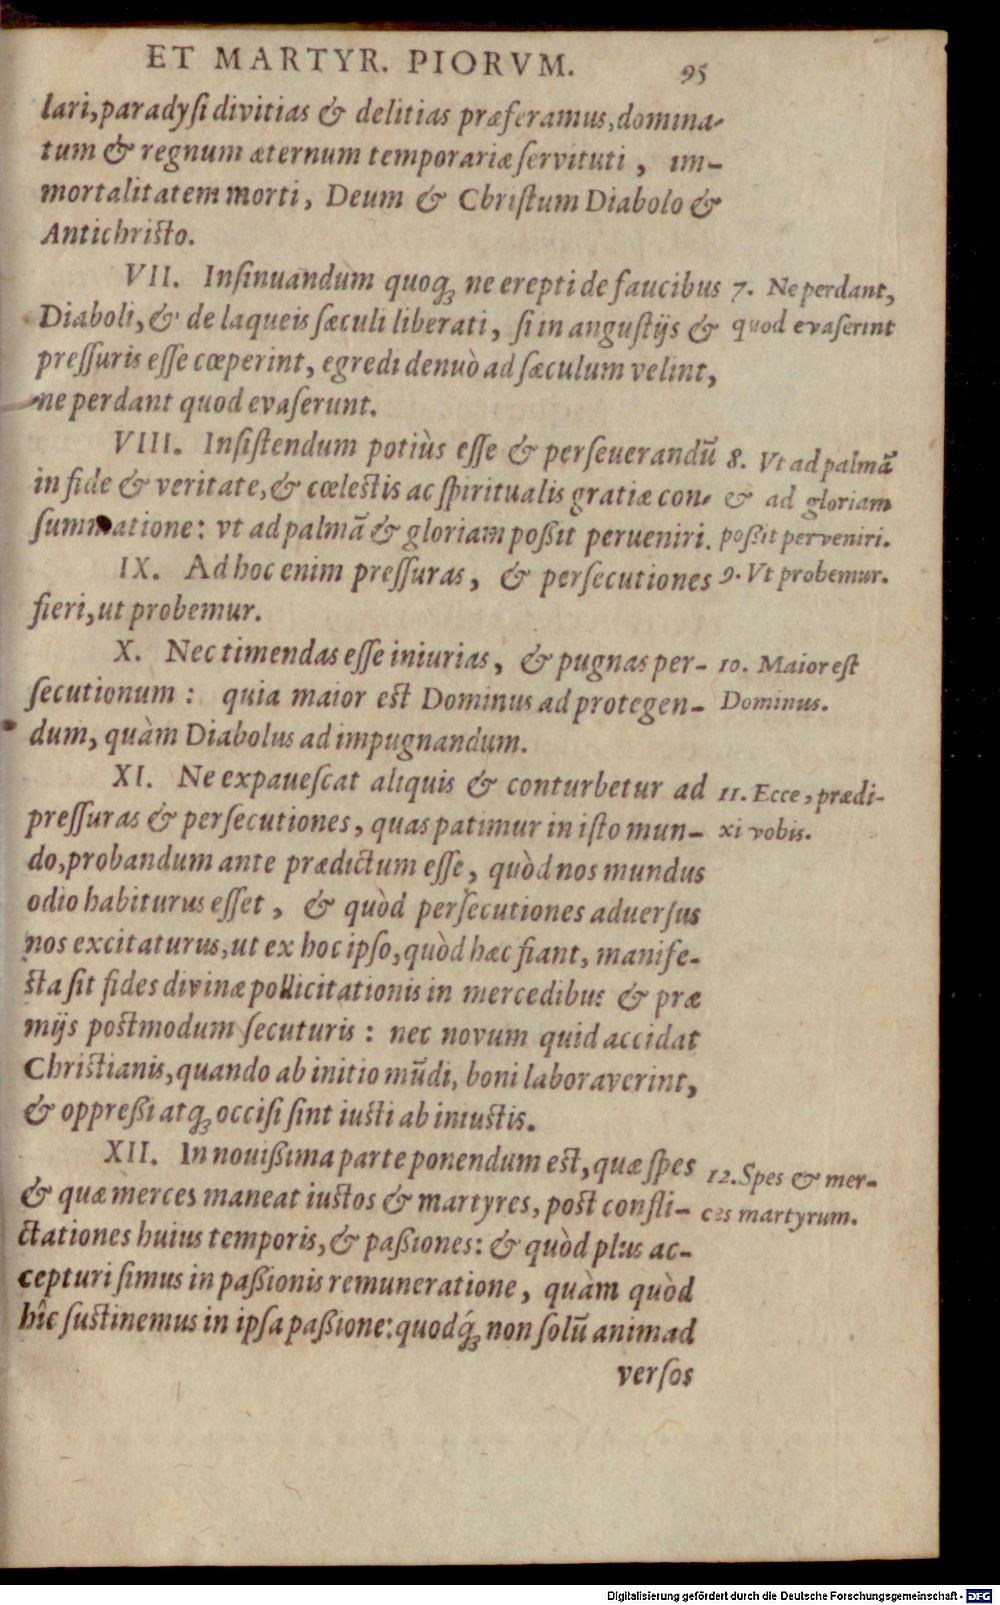 ET MARTYR. PIORVM. 95
lari,paradysi divitias & delitias præferamus,domina-
tum & regnum æternum temporariæ servituti, im-
mortalitatem morti, Deum & Christum Diabolo &
Antichristo.
VII. Insinuandum quoq; ne erepti de faucibus
Diaboli, & de laqueis sæculi liberati, si in angustijs &
pressuris esse cœperint, egredi denuò ad sæculum velint,
ne perdant quod evaserunt.
7. Ne perdant,
quod evaserint
VIII. Insistendum potiùs esse & perseuerandũ
in fide & veritate, & cœlestis ac spiritualis gratiæ con-
summatione: vt ad palmã & gloriam poßit perueniri.
8. Vt ad palmã
& ad gloriam
poßit perveniri.
IX. Ad hoc enim pressuras, & persecutiones
fieri, ut probemur.
9. Vt probemur.
X. Nec timendas esse iniurias, & pugnas per-
secutionum: quia maior est Dominus ad protegen-
dum, quàm Diabolus ad impugnandum.
10. Maior est
Dominus.
XI. Ne expauescat aliquis & conturbetur ad
pressuras & persecutiones, quas patimur in isto mun-
do, probandum ante prædictum esse, quòd nos mundus
odio habiturus esset, & quòd persecutiones aduersus
nos excitaturus, ut ex hoc ipso, quòd hæc fiant, manife-
sta sit fides divinæ pollicitationis in mercedibus & præ
mijs postmodum secuturis: nec novum quid accidat
Christianis, quando ab initio mũdi, boni laboraverint,
& oppreßi atq; occisi sint iusti ab iniustis.
11. Ecce, prædi-
xi vobis.
XII. In nouißima parte ponendum est, quæ spes
& quæ merces maneat iustos & martyres, post confli-
ctationes huius temporis, & paßiones: & quòd plus ac-
cepturi simus in paßionis remuneratione, quàm quòd
hîc sustinemus in ipsa paßione: quodq́; non solũ animad
versos
12. Spes & mer-
ces martyrum.
Digitalisierung gefördert durch die Deutsche Forschungsgemeinschaft - DFG